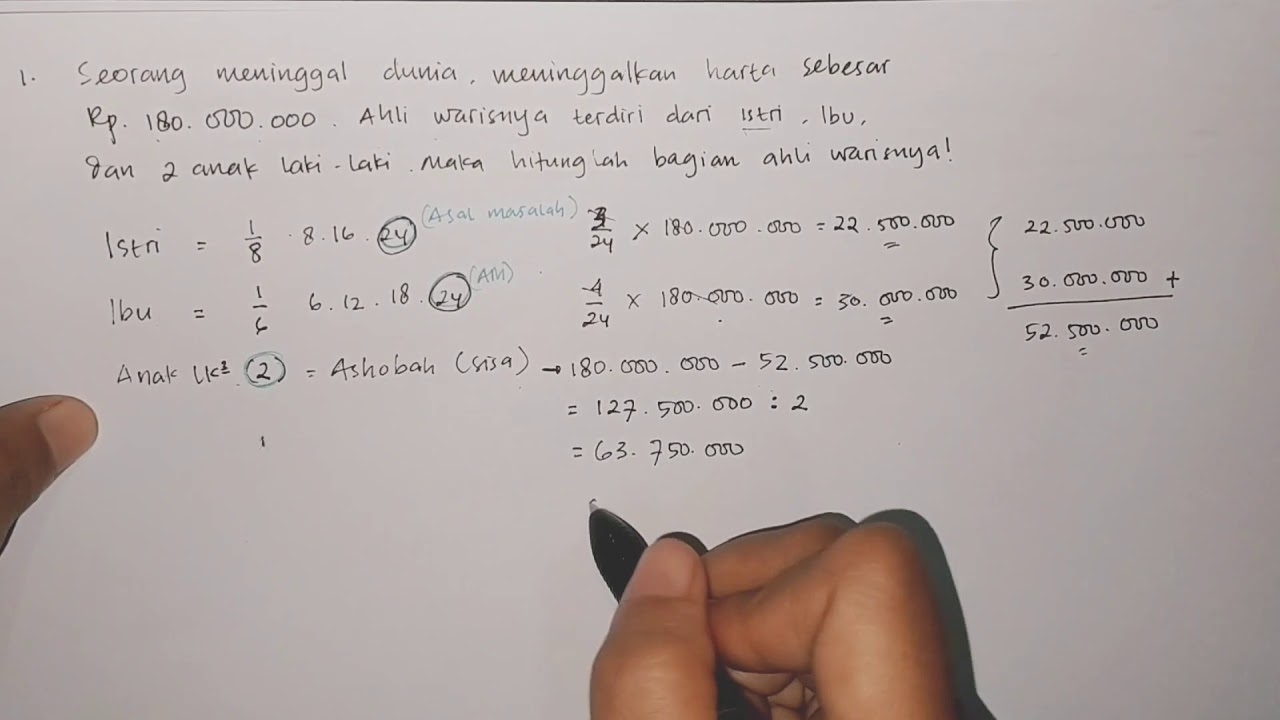 1. Seorang meninggal dunia, meninggalkan harta sebesar
Rp. 180.000.000. Ahli warisnya terdiri dari istri, Ibu,
dan 2 anak laki-laki. Maka hitunglah bagian ahli warisnya!
Istri = 1/8 . 8.16.24 (Asal masalah) 3/24 × 180.000.000 = 22.500.000
Ibu = 1/6 6.12.18.24 (AM) 4/24 × 180.000.000 = 30.000.000
22.500.000
30.000.000 +
52.500.000
Anak lk² (2) = Ashobah (sisa) → 180.000.000 - 52.500.000
= 127.500.000 : 2
= 63.750.000